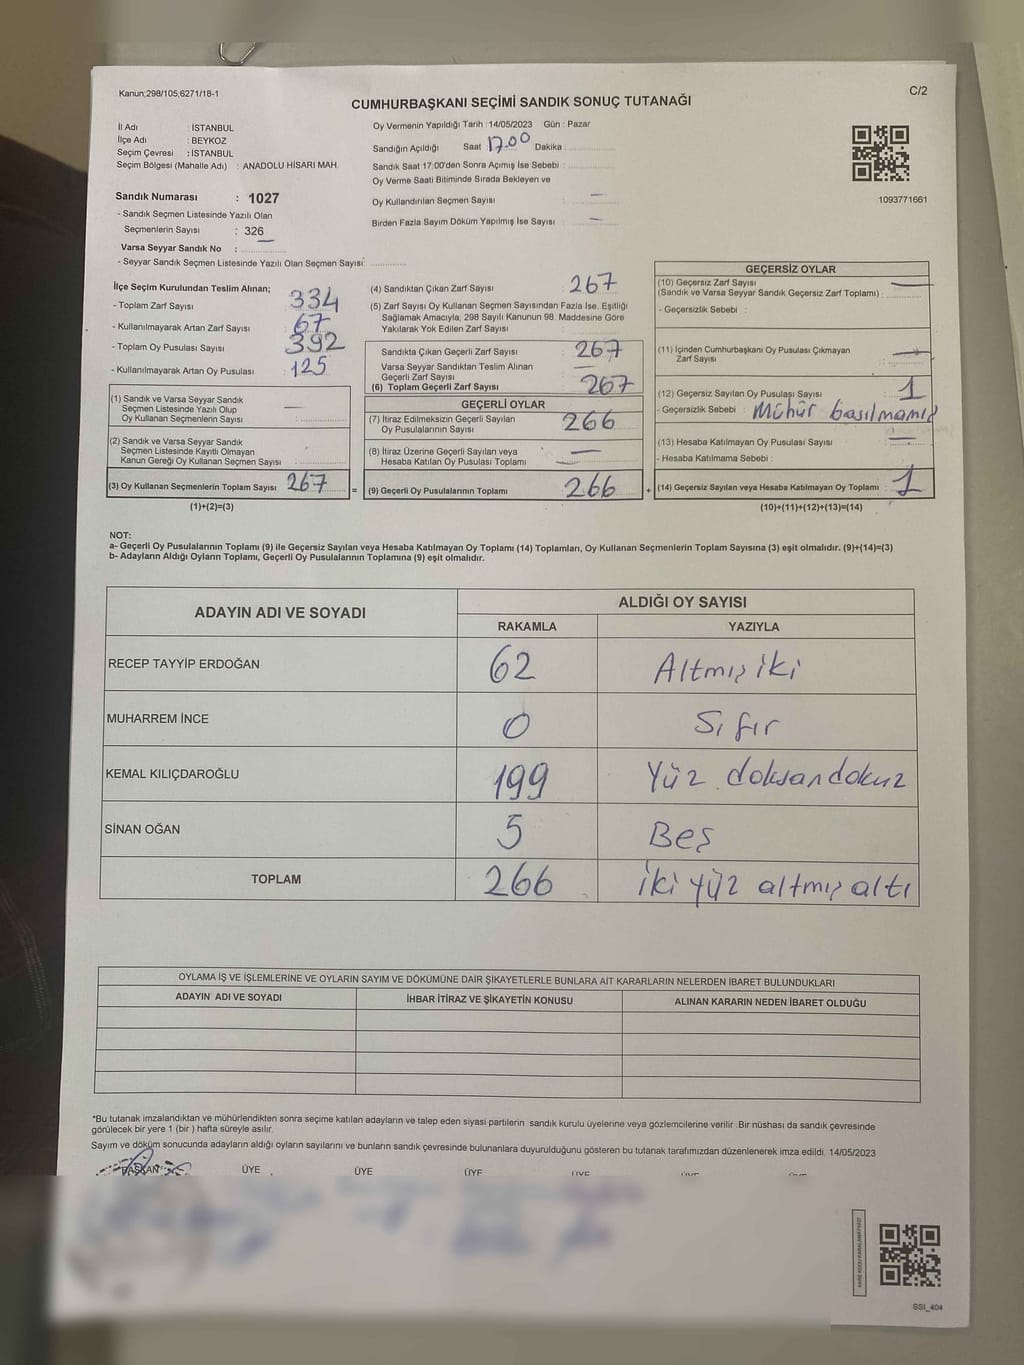 Kanun:298/105,6271/18-1
C/2
CUMHURBAŞKANI SEÇİMİ SANDIK SONUÇ TUTANAĞI
İl Adı : İSTANBUL
İlçe Adı : BEYKOZ
Seçim Çevresi : İSTANBUL
Seçim Bölgesi (Mahalle Adı) : ANADOLU HİSARI MAH.
Sandık Numarası : 1027
- Sandık Seçmen Listesinde Yazılı Olan
Seçmenlerin Sayısı : 326
Varsa Seyyar Sandık No :
- Seyyar Sandık Seçmen Listesinde Yazılı Olan Seçmen Sayısı:
Oy Vermenin Yapıldığı Tarih : 14/05/2023 Gün : Pazar
Sandığın Açıldığı Saat 17.00 Dakika :
Sandık Saat 17:00'den Sonra Açmış İse Sebebi :
Oy Verme Saati Bitiminde Sırada Bekleyen ve
Oy Kullandırılan Seçmen Sayısı : —
Birden Fazla Sayım Döküm Yapılmış İse Sayısı : —
1093771661
İlçe Seçim Kurulundan Teslim Alınan;
- Toplam Zarf Sayısı : 334
- Kullanılmayarak Artan Zarf Sayısı : 67
- Toplam Oy Pusulası Sayısı : 392
- Kullanılmayarak Artan Oy Pusulası : 125
(1) Sandık ve Varsa Seyyar Sandık
Seçmen Listesinde Yazılı Olup
Oy Kullanan Seçmenlerin Sayısı : —
(2) Sandık ve Varsa Seyyar Sandık
Seçmen Listesinde Kayıtlı Olmayan
Kanun Gereği Oy Kullanan Seçmen Sayısı :
(3) Oy Kullanan Seçmenlerin Toplam Sayısı : 267
(1)+(2)=(3)
=
(4) Sandıktan Çıkan Zarf Sayısı : 267
(5) Zarf Sayısı Oy Kullanan Seçmen Sayısından Fazla İse, Eşitliği
Sağlamak Amacıyla; 298 Sayılı Kanunun 98. Maddesine Göre
Yakılarak Yok Edilen Zarf Sayısı :
Sandıkta Çıkan Geçerli Zarf Sayısı : 267
Varsa Seyyar Sandıktan Teslim Alınan
Geçerli Zarf Sayısı : —
(6) Toplam Geçerli Zarf Sayısı : 267
GEÇERLİ OYLAR
(7) İtiraz Edilmeksizin Geçerli Sayılan
Oy Pusulalarının Sayısı : 266
(8) İtiraz Üzerine Geçerli Sayılan veya
Hesaba Katılan Oy Pusulası Toplamı : —
(9) Geçerli Oy Pusulalarının Toplamı : 266
+
GEÇERSİZ OYLAR
(10) Geçersiz Zarf Sayısı —
(Sandık ve Varsa Seyyar Sandık Geçersiz Zarf Toplamı) :
- Geçersizlik Sebebi :
(11) İçinden Cumhurbaşkanı Oy Pusulası Çıkmayan
Zarf Sayısı : —
(12) Geçersiz Sayılan Oy Pusulası Sayısı : 1
- Geçersizlik Sebebi : Mühür basılmamış
(13) Hesaba Katılmayan Oy Pusulası Sayısı : —
- Hesaba Katılmama Sebebi :
(14) Geçersiz Sayılan veya Hesaba Katılmayan Oy Toplamı : 1
(10)+(11)+(12)+(13)=(14)
NOT:
a- Geçerli Oy Pusulalarının Toplamı (9) ile Geçersiz Sayılan veya Hesaba Katılmayan Oy Toplamı (14) Toplamları, Oy Kullanan Seçmenlerin Toplam Sayısına (3) eşit olmalıdır. (9)+(14)=(3)
b- Adayların Aldığı Oyların Toplamı, Geçerli Oy Pusulalarının Toplamına (9) eşit olmalıdır.
ADAYIN ADI VE SOYADI
ALDIĞI OY SAYISI
RAKAMLA YAZIYLA
RECEP TAYYİP ERDOĞAN 62 Altmış iki
MUHARREM İNCE 0 Sıfır
KEMAL KILIÇDAROĞLU 199 Yüz doksan dokuz
SİNAN OĞAN 5 Beş
TOPLAM 266 İki yüz altmış altı
OYLAMA İŞ VE İŞLEMLERİNE VE OYLARIN SAYIM VE DÖKÜMÜNE DAİR ŞİKAYETLERLE BUNLARA AİT KARARLARIN NELERDEN İBARET BULUNDUKLARI
ADAYIN ADI VE SOYADI İHBAR İTİRAZ VE ŞİKAYETİN KONUSU ALINAN KARARIN NEDEN İBARET OLDUĞU
*Bu tutanak imzalandıktan ve mühürlendikten sonra seçime katılan adayların ve talep eden siyasi partilerin sandık kurulu üyelerine veya gözlemcilerine verilir. Bir nüshası da sandık çevresinde
görülecek bir yere 1 (bir ) hafta süreyle asılır.
Sayım ve döküm sonucunda adayların aldığı oyların sayılarını ve bunların sandık çevresinde bulunanlara duyurulduğunu gösteren bu tutanak tarafımızdan düzenlenerek imza edildi. 14/05/2023
BAŞKAN ÜYE ÜYE ÜYE
SSI_404